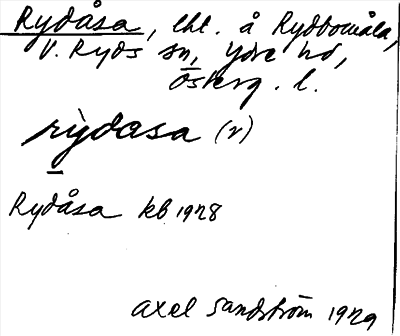 Rydåsa, lht. å Rydbomåla,
V. Ryds sn, Ydre hd,
Österg. l.
rỳdasa (v)
Rydåsa kb 1928
Axel Sandström 1929